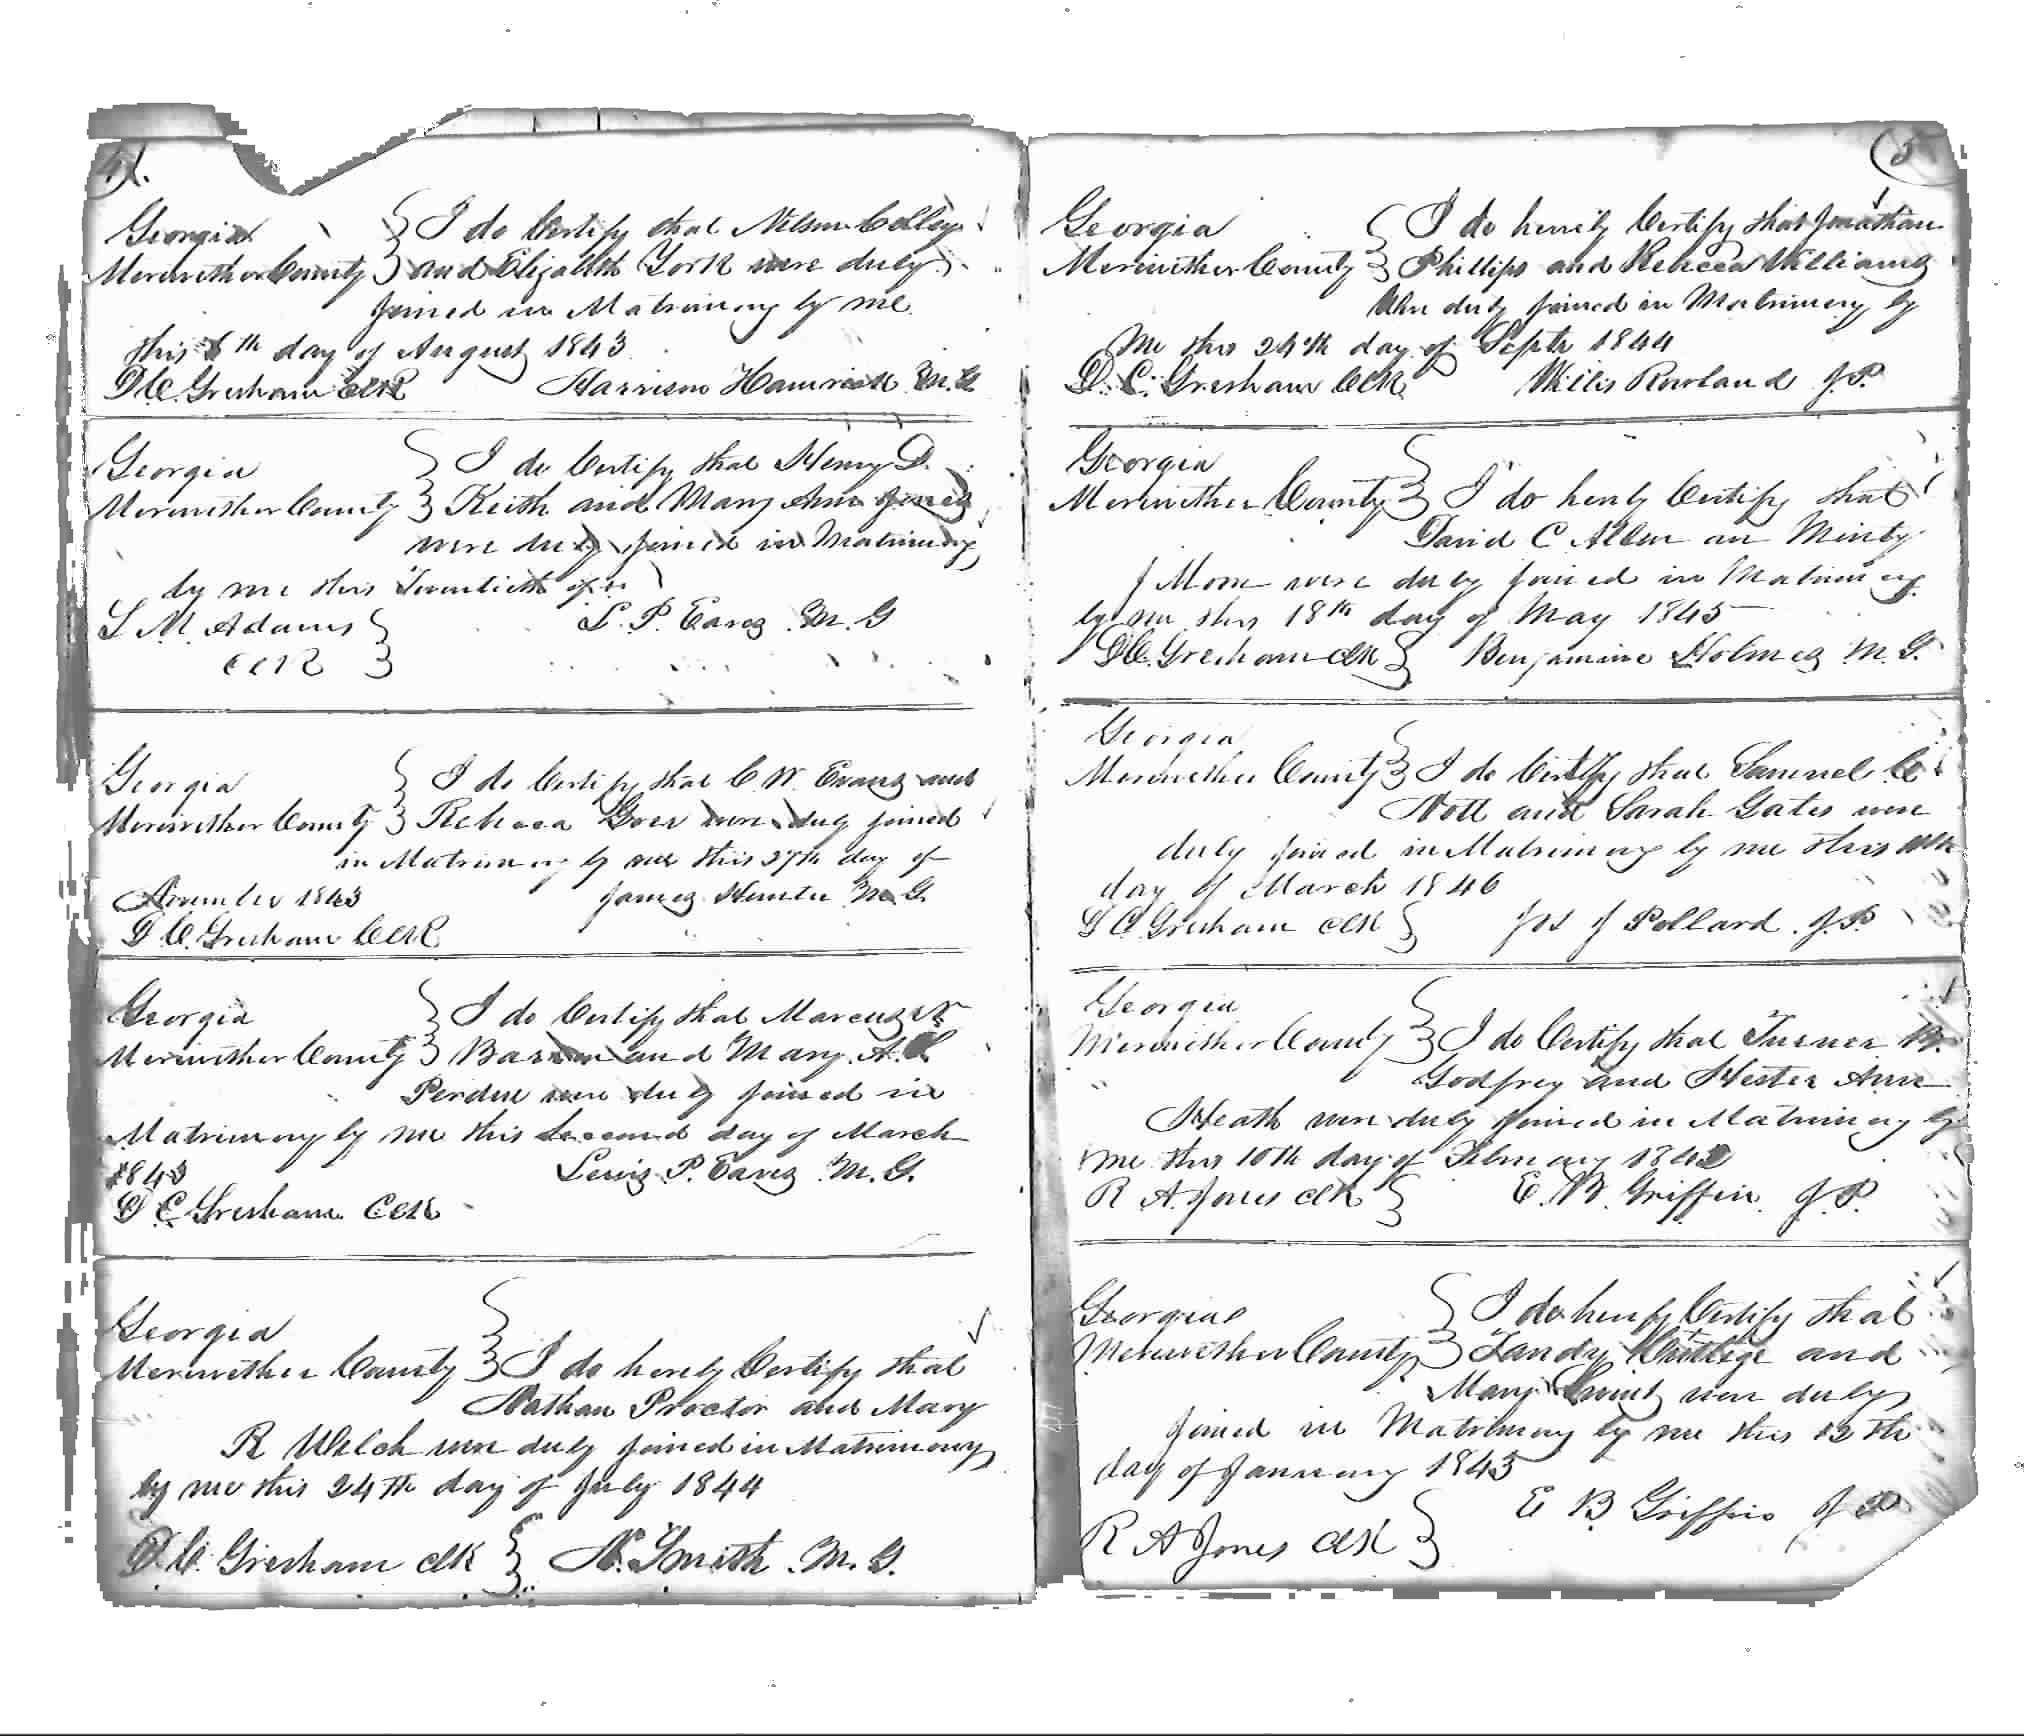 4
Georgia I do Certify that Nelson Colley
Meriwether County and Elizabeth York were duly
joined in Matrimony by me
this 8th day of August 1843
D C. Gresham Clk Harrison Hamrick M. G
Georgia I do Certify that Henry D.
Meriwether County Keith and Mary Ann Jones
were duly joined in Matrimony
by me this Twentieth of
L. P. Eaves M. G
M. Adams
Clk
Georgia I do Certify that C. W. Evans and
Meriwether County Rebecca were duly joined
in Matrimony by me this 27th day of
November 1843 James Hunter M. G.
D C. Gresham Clk
Georgia I do Certify that Marcus
Meriwether County and Mary A.
Perdue were duly joined in
Matrimony by me this Second day of March
1843 Lewis P. Eaves M. G.
D C Gresham Clk
Georgia
Meriwether County I do hereby Certify that
Nathan Proctor and Mary
R Welch were duly joined in Matrimony
by me this 24th day of July 1844
D. C. Gresham Clk N. Smith M. G.
5
Georgia I do hereby Certify that Jonathan
Meriwether County Phillips and Rebecca Williams
were duly joined in Matrimony by
me this 24th day of Septr 1844
D. C. Gresham Clk Willis Rowland J. P.
Georgia
Meriwether County I do hereby Certify that
David C Allen an Minty
J Moore were duly joined in Matrimony
by me this 18th day of May 1845
D C. Gresham Clk Benjamine Holmes M. G.
Georgia
Meriwether County I do Certify that Samuel
Nott and Sarah Gates were
duly joined in Matrimony by me this
day of March 1846
D C Gresham Clk Jos J Pollard J. P.
Georgia
Meriwether County I do Certify that Turner B.
Godfrey and Hester Ann
Heath were duly joined in Matrimony by
me this 10th day of February
R A. Jones Clk E. B. Griffin J. P.
Georgia I do hereby Certify that
Meriwether County Tandy and
Mary were duly
joined in Matrimony by me this 12th
day of January 1845
E B Griffin J P
R A Jones Clk